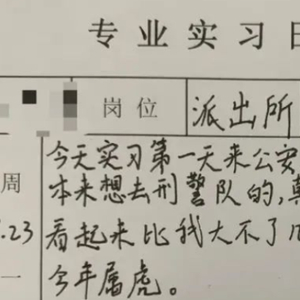 专业实习日
岗位
派出所
周
.23
一
今天实习第一天来公安
本来想去刑警队的,
看起来比我大不了几
今年属虎。